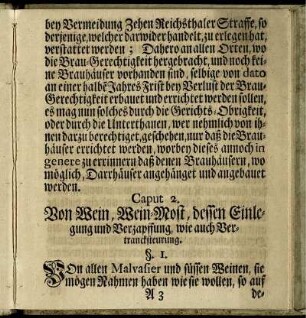 bey Vermeidung Zehen Reichsthaler Straffe, so
derjenige, welcher darwider handelt, zu erlegen hat,
verstattet werden; Dahero an allen Orten, wo
die Brau-Gerechtigkeit hergebracht, und noch kei-
ne Brauhäuser vorhanden sind, selbige von dato
an einer halbē Jahres Frist bey Verlust der Brau-
Gerechtigkeit erbauet und errichtet werden sollen,
es mag nun solches durch die Gerichts-Obrigkeit,
oder durch die Unterthanen, wer nehmlich von ih-
nen darzu berechtiget, geschehen, nur daß die Brau-
häuser errichtet werden, worbey dieses annoch in
genere zu errinnern daß denen Brauhäusern, wo
möglich, Darrhäuser angehänget und angebauet
werden.
Caput 2.
Von Wein, Wein-Most, dessen Einle-
gung und Verzapffung, wie auch Ver-
trancksteurung.
§. 1.
VOn allen Malvasier und süssen Weinen, sie
mögen Nahmen haben wie sie wollen, so auf
A 3 de-